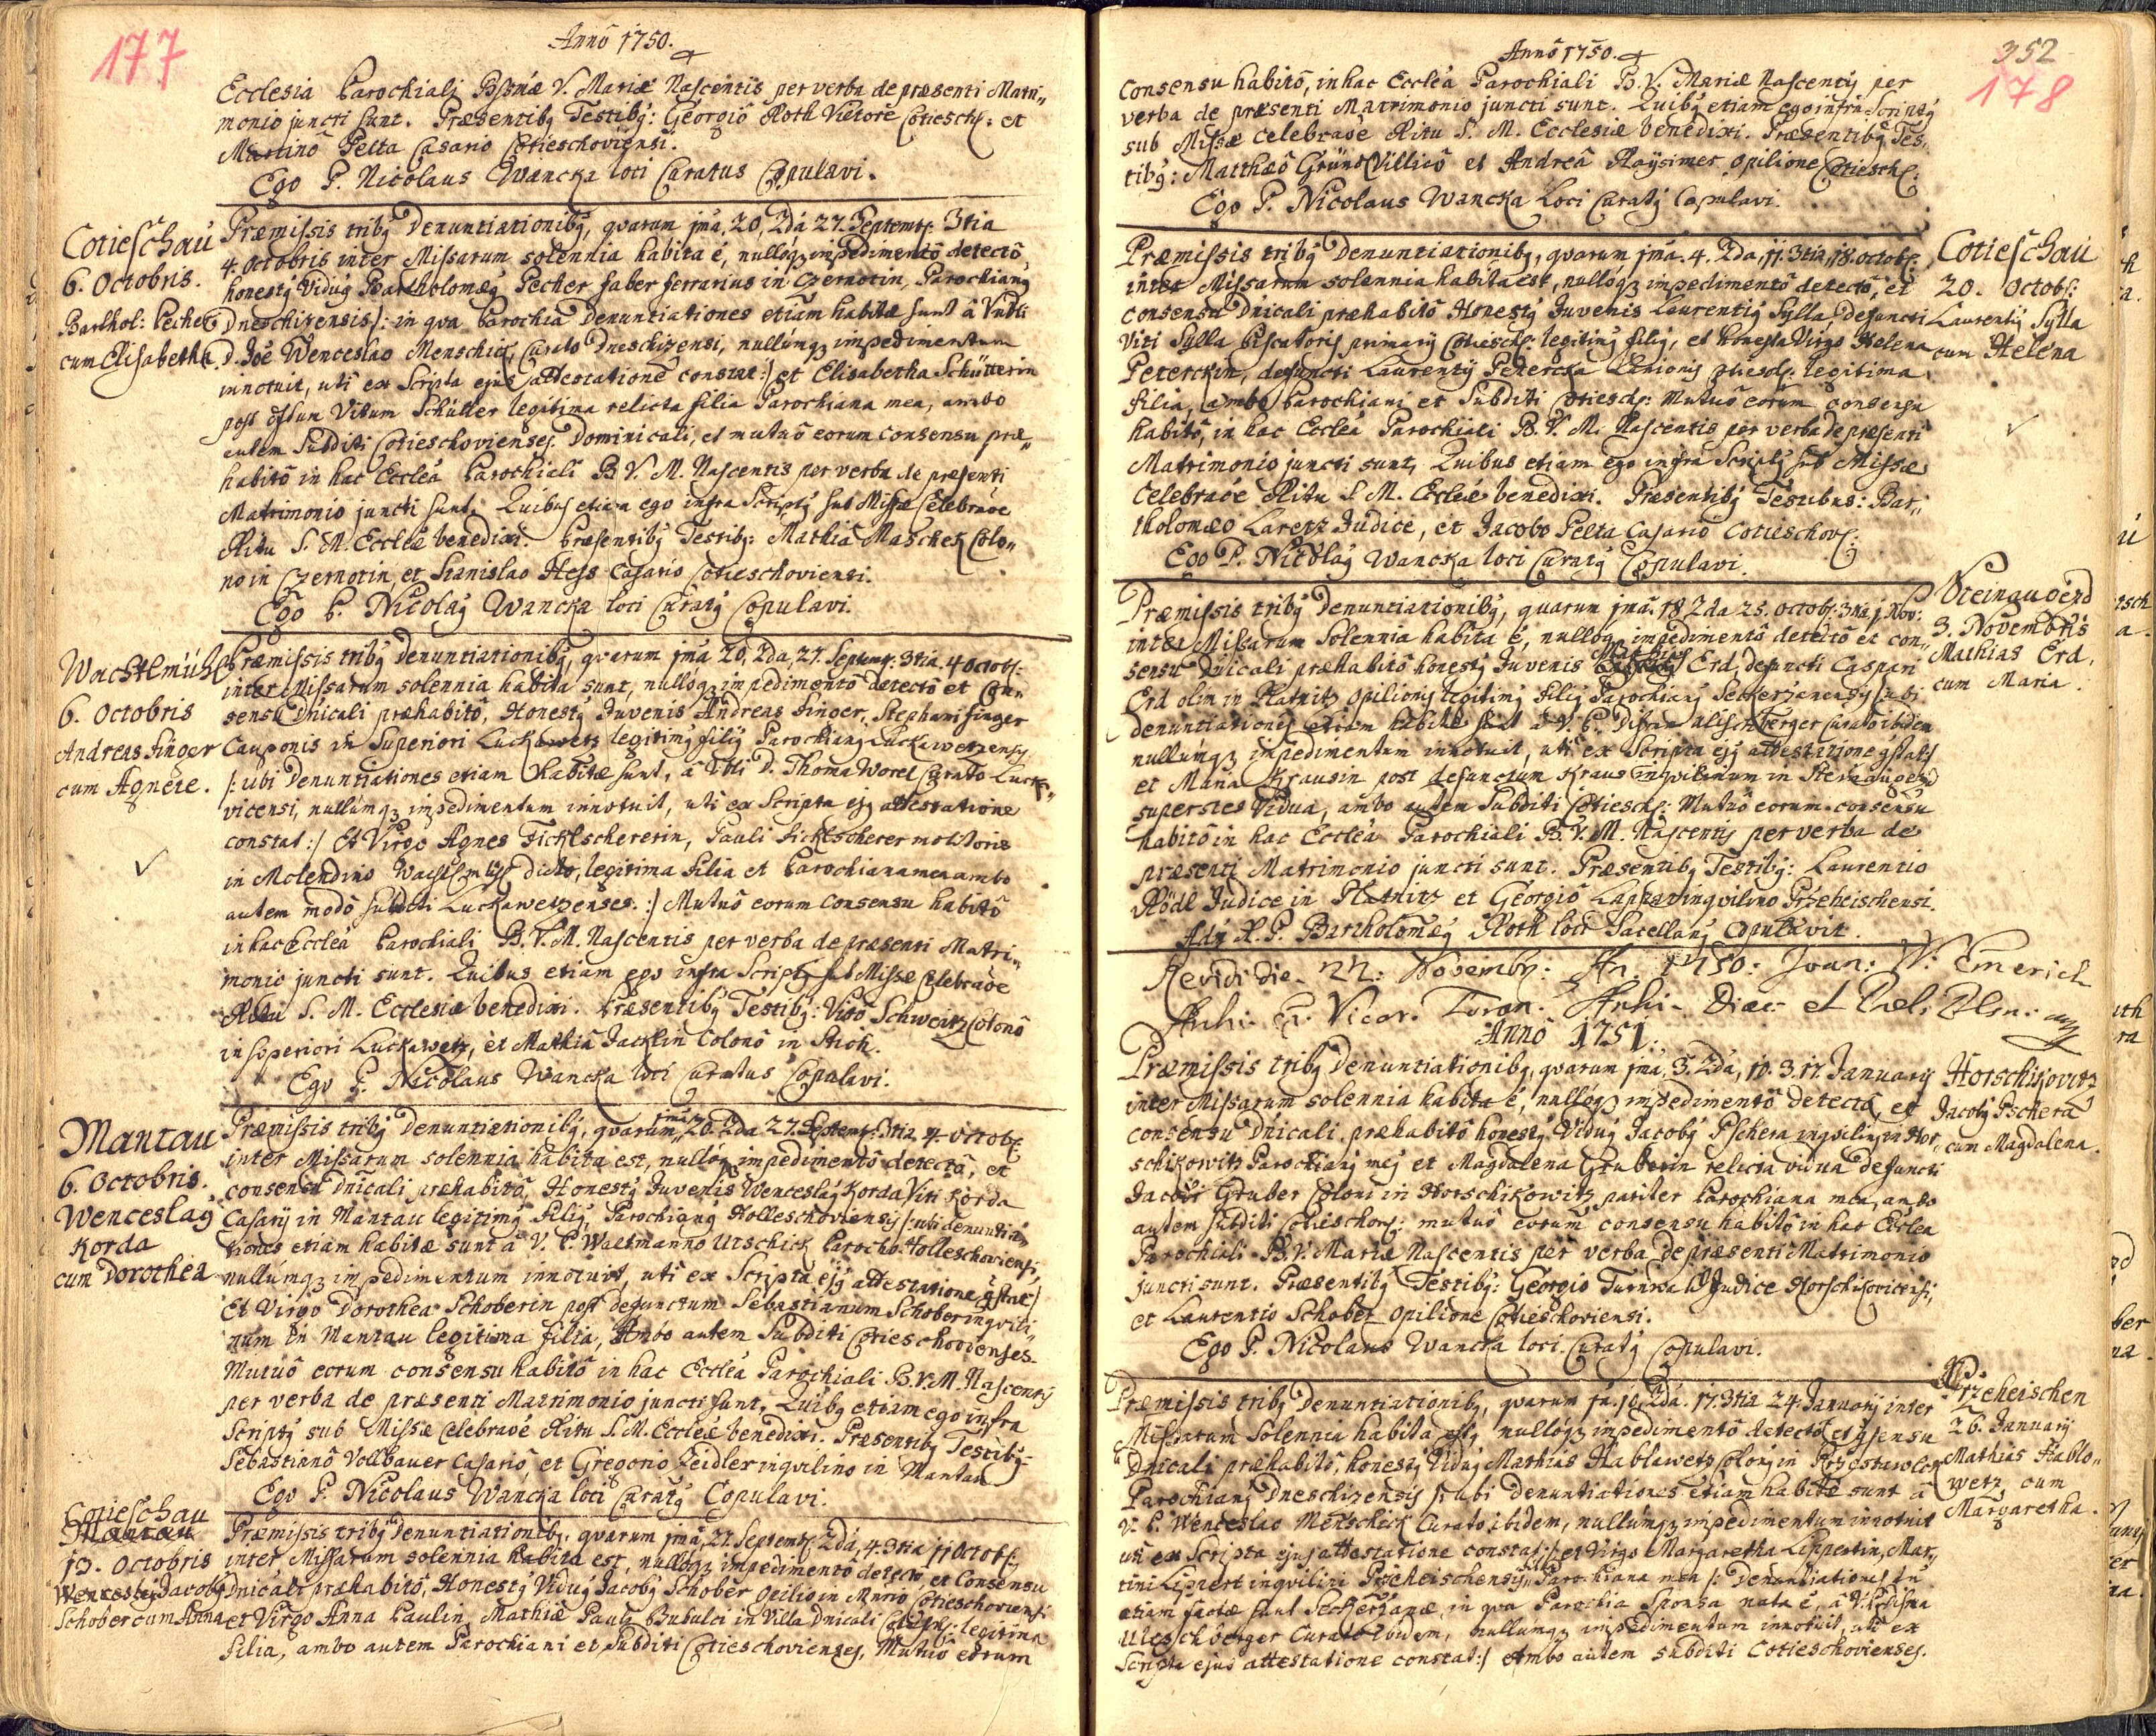 177
Annô 1750.
Ecclesia Parochiali Bssmæ V. Mariæ Nascentis per verba de præsenti Matri„
monio juncti sunt. Præsentibq Testibq: Georgiô Roth Vietore Cotiesch: et
Martinô Pelta Casario Cotieschoviensi.
Ego P. Nicolaus Wancka loci Curatus Copulavi.
Cotieschau
6. Octobris.
Barthol: Pecher
cum Elisabetha.
Præmissis tribq Denuntiationibq, qvarum jmâ, 20, 2dâ 27. Septembr: 3tia
4. Octobris inter Missarum solennia habita é, nullóqz impedimentô detectô,
honestq Viduq Bartholomæq Pecher faber ferrarius in Czernotin, Parochianq
Dneschizensis /: in qva Parochia Denuntiationes etiam habitæ sunt â Vndli
D. Joe Wenceslao Menschick, Curato Dneschizensi, nullúmqz impedimentum
innotuit, uti ex Scripta ejus attestatione constat :/ et Elisabetha Schütterin
post dfstum Vitum Schütter legitima relicta filia Parochiana mea, ambo
autem Subditi Cotieschovienses. Dominicali, et mutuô eorum consensu præ„
habitô in hac Eccleâ Parochiali B V. M. Nascentis per verba de præsenti
Matrimonio juncti sunt, Quibus etiam ego infra Scriptq sub Missæ Celebraõe
Ritu S. M. Eccleæ benedixi. Præsentibq Testibq: Mathiâ Maschek Colo„
no in Czernotin, et Stanislao Hess Casario Cotieschoviensi.
Ego P. Nicolaq Wancka loci Curatq Copulavi.
Wachtlmühl
6. Octobris
Andreas Finger
cum Agnete.
Præmissis tribq Denuntiationibq, qvarum jmâ 20, 2da, 27. Septemb: 3tia, 4 Octob:
inter Missarum solennia habita sunt, nullóqz impedimentô detectô et Con„
sensu Dnicali præhabitô, Honestq Juvenis Andreas Finger, Stephani Finger
Cauponis in Superiori Luckawetz legitimq filiq Parochianq Luckawetzensis
/: ubi Denuntiationes etiam habitæ sunt, â Vbli D. Thoma Worel Curato Lucka„
vicensi, nullúmqz impedimentum innotuit, uti ex Scripta ejq attestatione
constat :/ Et Virgo Agnes Ticklschererin, Pauli Ticklscherer molitoris
in Molendino Wachtlmühl dicto, legitima filia et Parochiana mea ambo
autem modô subditi Luckawetzenses. :/ Mutuô eorum Consensu habitô
in hac Eccleâ Parochiali B. V. M. Nascentis per verba de præsenti Matri„
monio juncti sunt. Quibus etiam ego infra Scriptq sub Missæ Celebraõe
Ritu S. M. Ecclesiæ benedixi. Præsentibq Testibq: Vitô Schweitz Colonô
in Superiori Luckawetz, et Mathiâ Jacklin Colonô in Stich.
Ego P. Nicolaus Wancka loci Curatus Copulavi.
Mantau
6. Octobris.
Wenceslaq
Korda
cum Dorothea
Præmissis tribq Denuntiationibq, qvarum jmâ 20. 2da 27. Septemb: 3tia 4. Octob:
inter Missarum solennia habita est, nullóqz impedimentô detectô, et
consensu Dnicali præhabitô, Honestq Juvenis Wenceslaq Korda Viti Korda
Casarij in Mantau legitimq filiq, Parochianq Holleschoviensis /: ubi denuntia„
tiones etiam habitæ sunt â V. P. Waltmanno Utschick Parocho Holleschoviensi,
nullúmqz impedimentum innotuit, uti ex Scripta ejq attestatione gstat :/
Et Virgo Dorothea Schoberin post defunctum Sebastianum Schober inqvili„
num in Mantau legitima filia, Ambo autem Subditi Cotieschovienses.
Mutuô eorum consensu habitô in hac Eccleâ Parochiali B. V. M. Nascentis
per verba de præsenti Matrimonio juncti sunt, Quibq etiam ego infra
Scriptq sub Missæ Celebraõe Ritu S. M. Eccleæ benedixi. Præsentibq Testibq
Sebastianô Vollbauer Casariô, et Gregorio Zeidler inqvilino in Mantau
Ego P. Nicolaus Wancka loci Curatq Copulavi.
Cotieschau
Mantau
13. Octobris
Wenceslaq Jacobq
Schober cum Anna
Præmissis tribq Denuntiationibq, qvarum jmâ, 27. Septemb: 2dâ, 4. 3tia 11 Octob:
inter Missarum solennia habita est, nullóqz impedimentô detectô, et Consensu
Dnicali præhabitô, Honestq Viduq Jacobq Schober Opilio in Murio Cotieschoviensi
et Virgo Anna Paulin Mathiæ Paulq Bubulci in Villa Dnicali Cotiesch: legitima
filia, ambo autem Parochiani et Subditi Cotieschovienses, Mutuô eorum
352
178
Annô 1750.
Consensu habitô, in hac Eccleâ Parochiali B. V. Mariæ Nascentis per
verba de præsenti Matrimonio juncti sunt. Quibq etiam ego infra Scriptq
sub Missæ Celebraõe Ritu S. M. Ecclesiæ benedixi. Præsentibq Tes„
tibq: Matthæô Grünt Villicô et Andreâ Raysimer Opilione Cotiesch:
Ego P. Nicolaus Wancka Loci Curatq Copulavi.
Cotieschau
20. Octob:
Laurentiq Sylla
cum Helena
Præmissis tribq Denuntiationibq, qvarum jmâ. 4. 2da, 11. 3tia, 18. Octob:
inter Missarum solennia habita est, nullóqz impedimentô detectô, et
consensu Dnicali præhabitô Honestq Juvenis Laurentiq Sylla defuncti
Viti Sylla Piscatoris primarij Cotiesch: legitimq filiq, et honesta Virgo Helena
Peterckin, defuncti Laurentij Petercka Lanionis Cotiesch: legitima
filia, ambo Parochiani et Subditi Cotiesch: Mutuô eorum consensu
habitô, in hac Eccleâ Parochiali B. V. M. Nascentis per verba de præsenti
Matrimonio juncti sunt, Quibus etiam ego infra Scriptq sub Missæ
Celebraõe Ritu S. M. Eccleæ benedixi. Præsentibq Testibus: Bar„
tholomæo Laretz Judice, et Jacobo Pelta Casario Cotieschov:
Ego P. Nicolaq Wancka loci Curatq Copulavi.
Steinaugezd
3. Novembris
Mathias Erd,
cum Maria.
Præmissis tribq Denuntiationibq, quarum jmâ. 18 2da 25. Octob: 3tia j. Nov:
inter Missarum Solennia habita é, nullóqz impedimentô detectô et con„
sensu Dnicali præhabitô honestq Juvenis Mathias Erd, defuncti Caspari
Erd olim in Platnitz Opilionis legitimq filiq Parochianq /: ubi
denuntiationes etiam habitæ sunt a V. P. Curato ibidem
nullúmqz impedimentum innotuit, uti ex Scripta ejq attestatione gstat :/
et Maria Krausin post defunctum Kraus inqvilinum in Steinaugezd
superstes Vidua, ambo autem Subditi Cotiesch: Mutuô eorum consensu
habitô in hac Eccleâ Parochiali B. V. M. Nascentis per verba de
præsenti Matrimonio juncti sunt. Præsentibq Testibq: Laurentio
Rödl Judice in Platnitz et Georgiô Lapper inqvilino Przeheischensi.
Adq R. P. Bartholomæq Roth loci Sacellanq Copulavit.
Revidi die 22: Novemb: An. 1750: Joan: W: Emerich
Archi Vicar.
Annô 1751.
Horschikovitz
Jacobq Pschera
cum Magdalena.
Præmissis tribq Denuntiationibq, qvarum jmâ, 3. 2dâ, 10. 3. 17. Januarij
inter Missarum solennia habita é, nullóqz impedimentô detectô, et
consensu Dnicali præhabitô honestq Viduq Jacobq Pschera inqvilinq in Hor„
schikowitz Parochianq meq et Magdalena Gruberin relicta vidua defuncti
Jacobi Gruber Coloni in Horschikowitz pariter Parochiana mea, ambo
autem subditi Cotieschov: mutuô eorum consensu habitô in hac Eccleâ
Parochiali B. V. Mariæ Nascentis per verba de præsenti Matrimonio
juncti sunt. Præsentibq Testibq: Georgio Turnwald Judice Horschikovicensi,
et Laurentio Schober Opilione Cotieschoviensi.
Ego P. Nicolaus Wancka loci Curatq Copulavi.
Przeheischen
26. Januarij
Mathias Hablo„
wetz, cum
Margaretha.
Præmissis tribq Denuntiationibq, qvarum ja. 10. 2da. 17. 3tia 24. Januarij inter
Missarum Solennia habita est, nullóqz impedimentô detectô et gsensu
Dnicali præhabitô, honestq Viduq Mathias Hablawetz Colonq in
Parochianq Dneschizensis /: ubi Denuntiationes etiam habitæ sunt â
V. P. Wenceslao Menscheck Curato ibidem, nullúmqz impedimentum innotuit
uti ex Scripta ejus attestatione constat :/ et Virgo Margaretha Lippertin, Mar„
tini Lippert inqvilini Przeheischensis, Parochiana mea /: Denuntiationes
etiam factæ sunt in qva Parochia Sponsa nata é, â
Uleschberger Curato ibidem, nullúmqz impedimentum innotuit, uti ex
Scripta ejus attestatione constat :/ Ambo autem subditi Cotieschovienses.